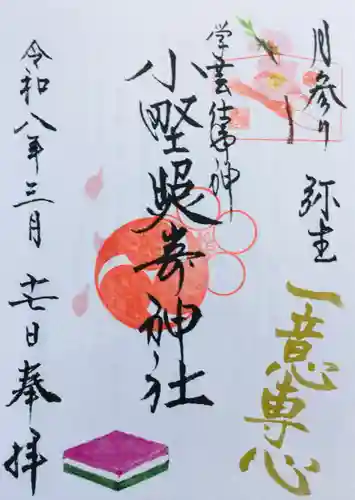 月参り 弥生
一意専心
学芸の神
小野照崎神社
令和八年三月
十七日奉拝